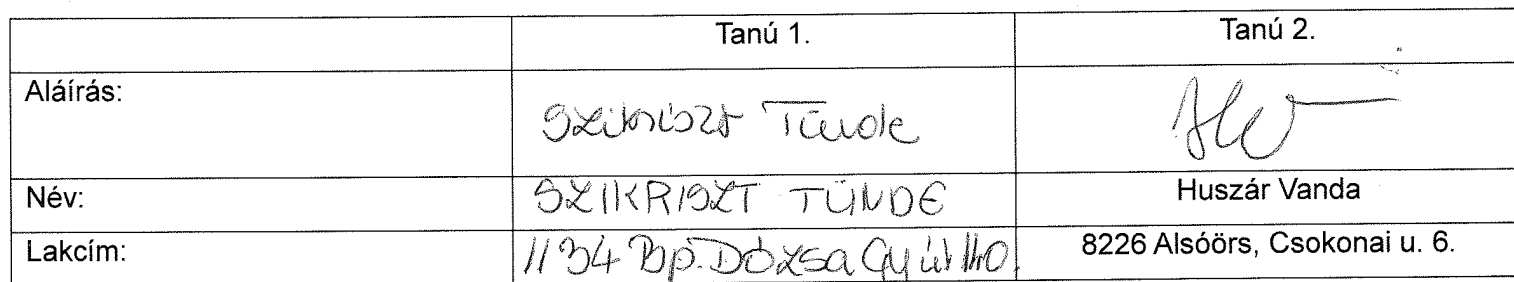 Tanú 1. Tanú 2.
Aláírás: Szikriszt Tünde
Név: SZIKRISZT TÜNDE Huszár Vanda
Lakcím: 1134 Bp. Dózsa Gy út 8226 Alsóörs, Csokonai u. 6.